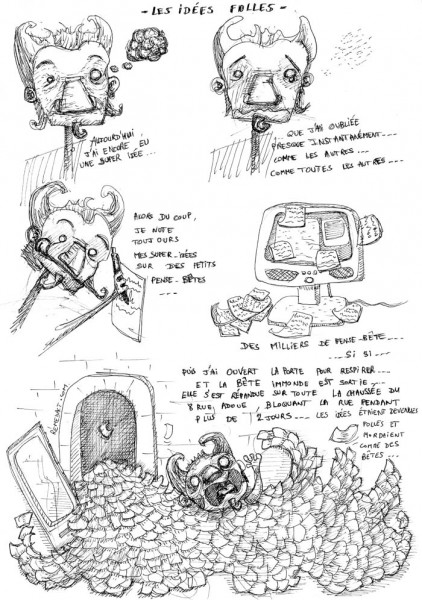 - LES IDÉES FOLLES -
AUJOURD'HUI,
J'AI ENCORE EU
UNE SUPER IDÉE...
QUE J'AI OUBLIÉE
PRESQUE INSTANTANÉMENT...
COMME LES AUTRES...
COMME TOUTES LES AUTRES...
ALORS DU COUP,
JE NOTE
TOUJOURS
MES SUPER-IDÉES
SUR DES PETITS
PENSE-BÊTES
...
DES MILLIERS DE PENSE-BÊTE...
... SI SI...
PUIS J'AI OUVERT LA PORTE POUR RESPIRER...
ET LA BÊTE IMMONDE EST SORTIE...
ELLE S'EST RÉPANDUE SUR TOUTE LA CHAUSSÉE DU
8 RUE ADOUE, BLOQUANT LA RUE PENDANT
PLUS DE 2 JOURS... LES IDÉES ÉTAIENT DEVENUES
FOLLES ET
MORDAIENT
COMME DES
BÊTES...